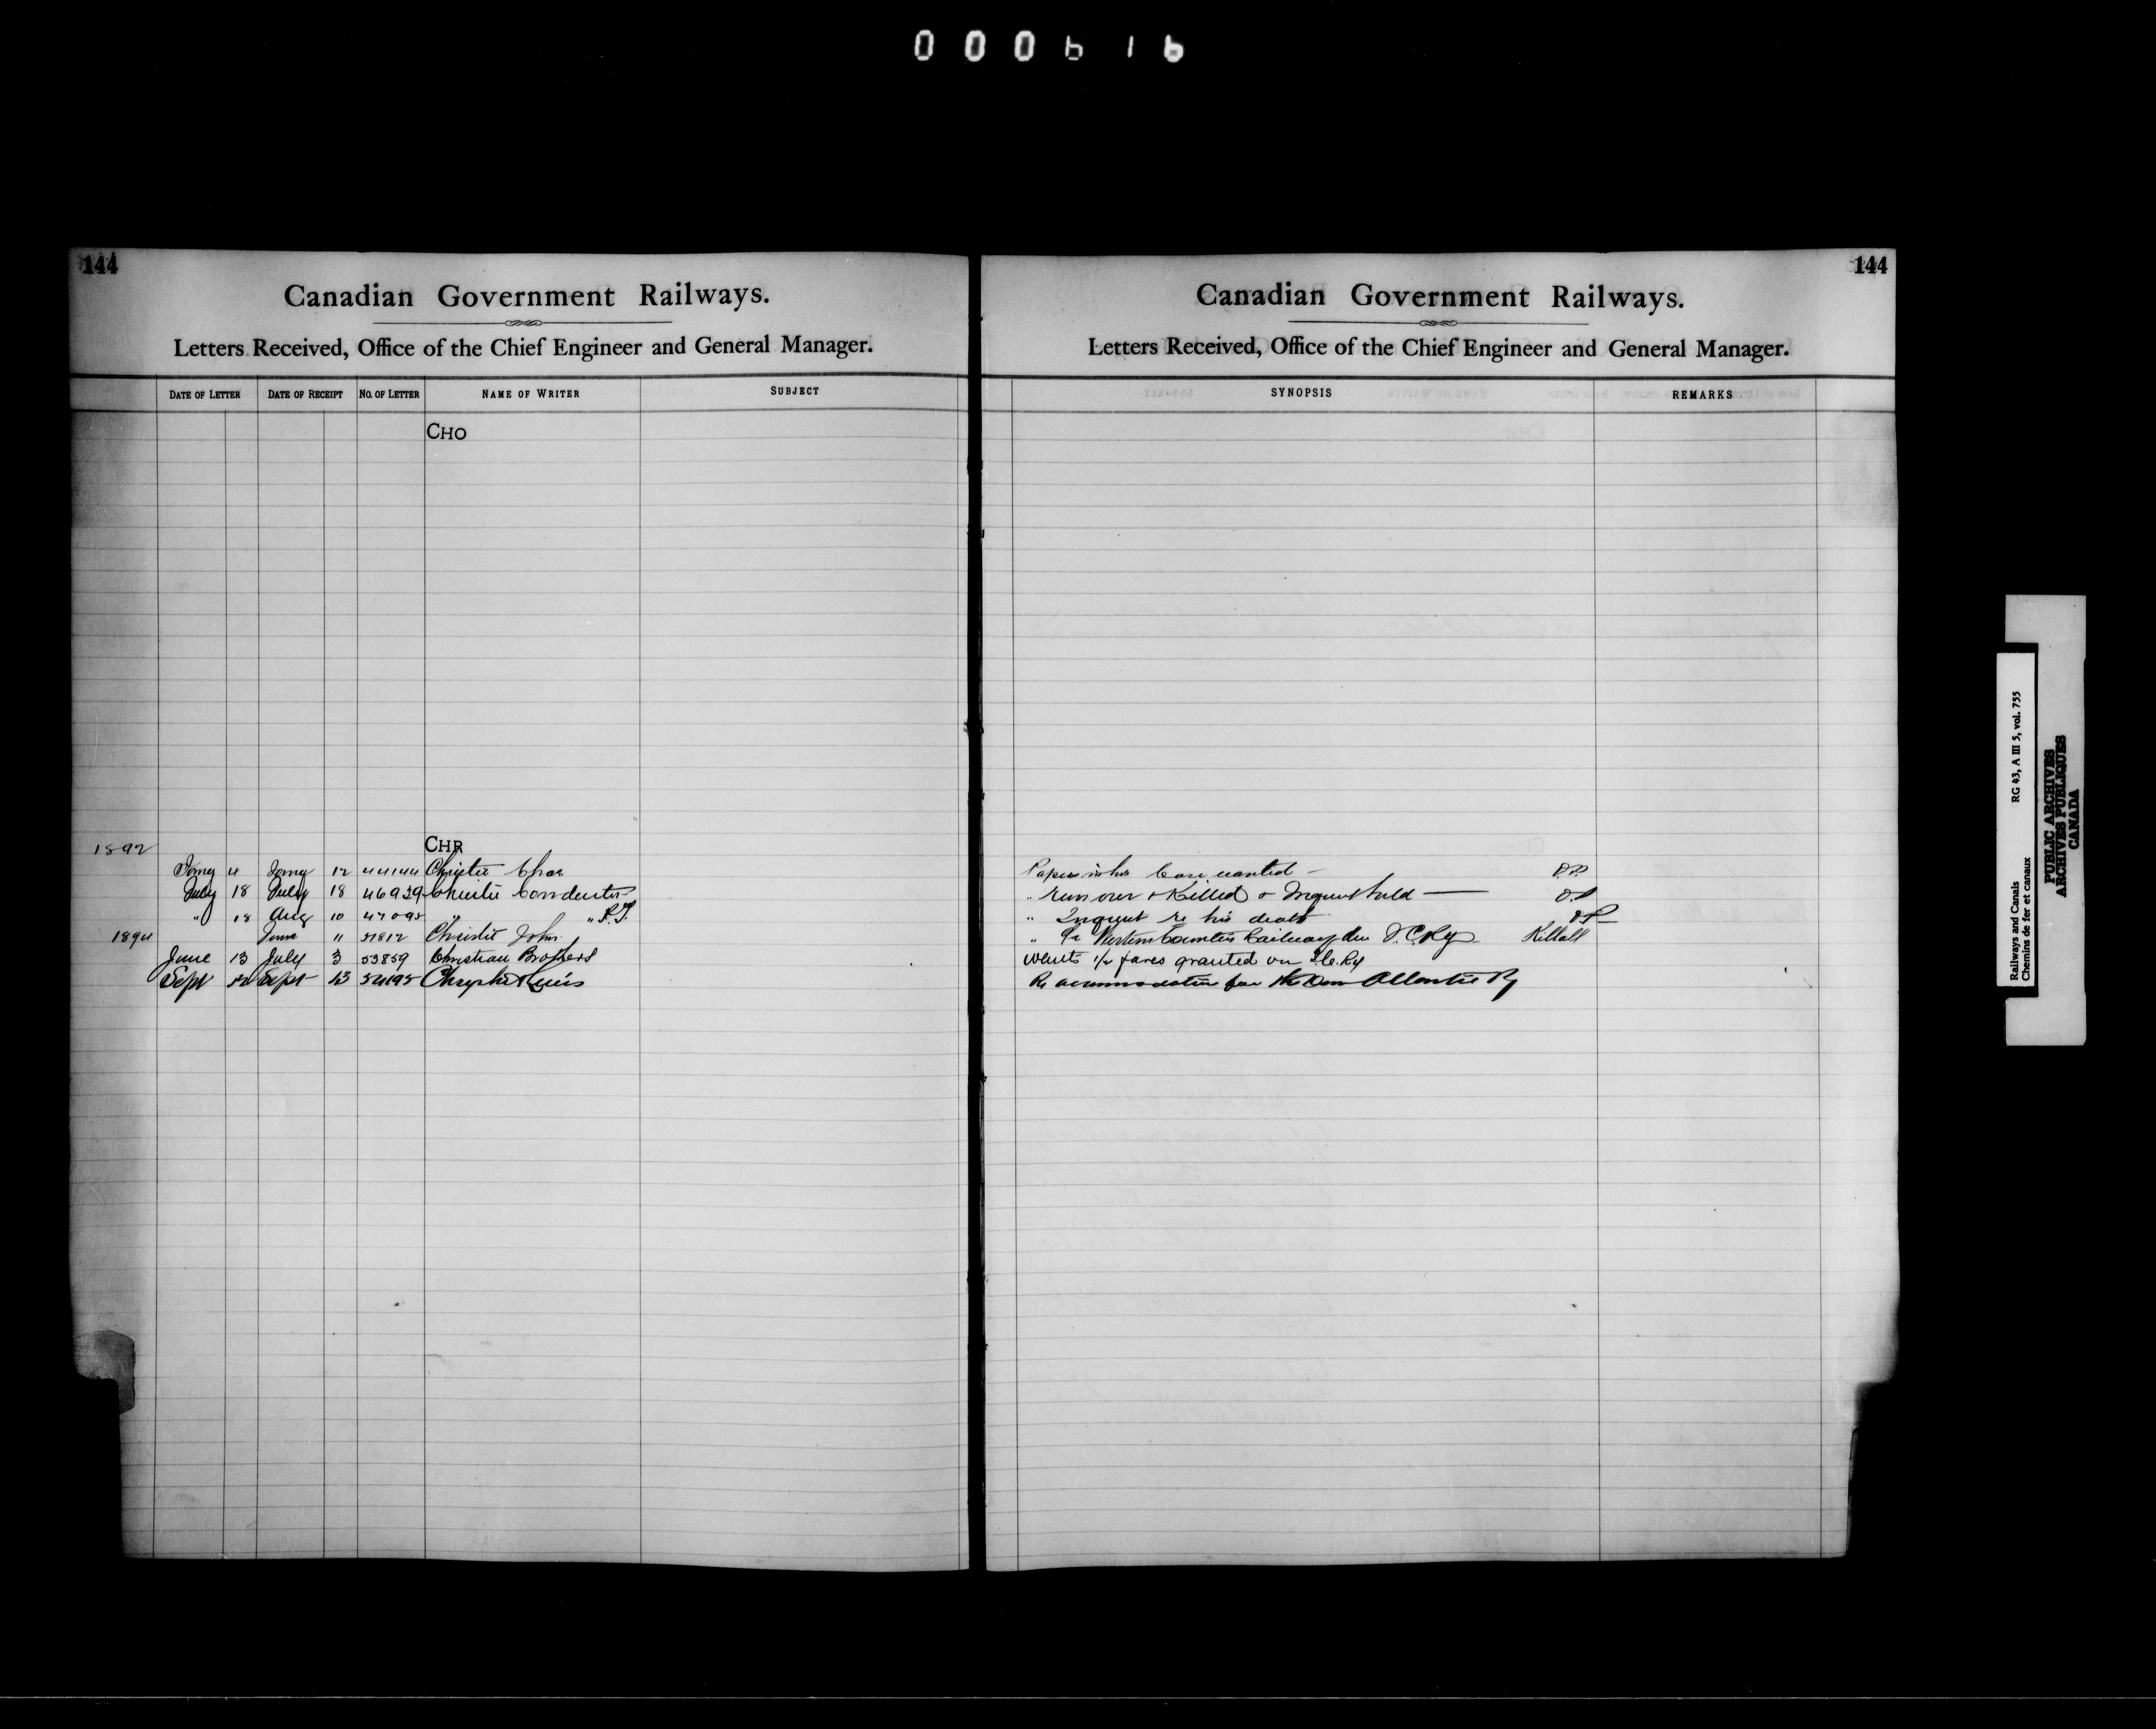 000616
144
Canadian Government Railways.
Letters Received, Office of the Chief Engineer and General Manager.
DATE OF LETTER DATE OF RECEIPT NO. OF LETTER NAME OF WRITER SUBJECT
CHO
1892
CHR
4 12 44144 Christie Chas
July 18 July 18 46929 Christie Conductor
" 18 Aug 10 47095 " "
1894 " 51812 Christie John
June 13 July 3 53859 Christian Brothers
Sept 12 Sept 13 54195
144
Canadian Government Railways.
Letters Received, Office of the Chief Engineer and General Manager.
SYNOPSIS REMARKS
Papers in his Case wanted —
" run over & Killed & Inquest held —
" Inquest re his death
" Western Counties Railway I.C.Ry
Wants 1/2 fares granted on I.C.Ry
Re accommodation for the Dom Atlantic Ry
Railways and Canals RG 43, A III 5, vol. 755
Chemins de fer et canaux
PUBLIC ARCHIVES
ARCHIVES PUBLIQUES
CANADA